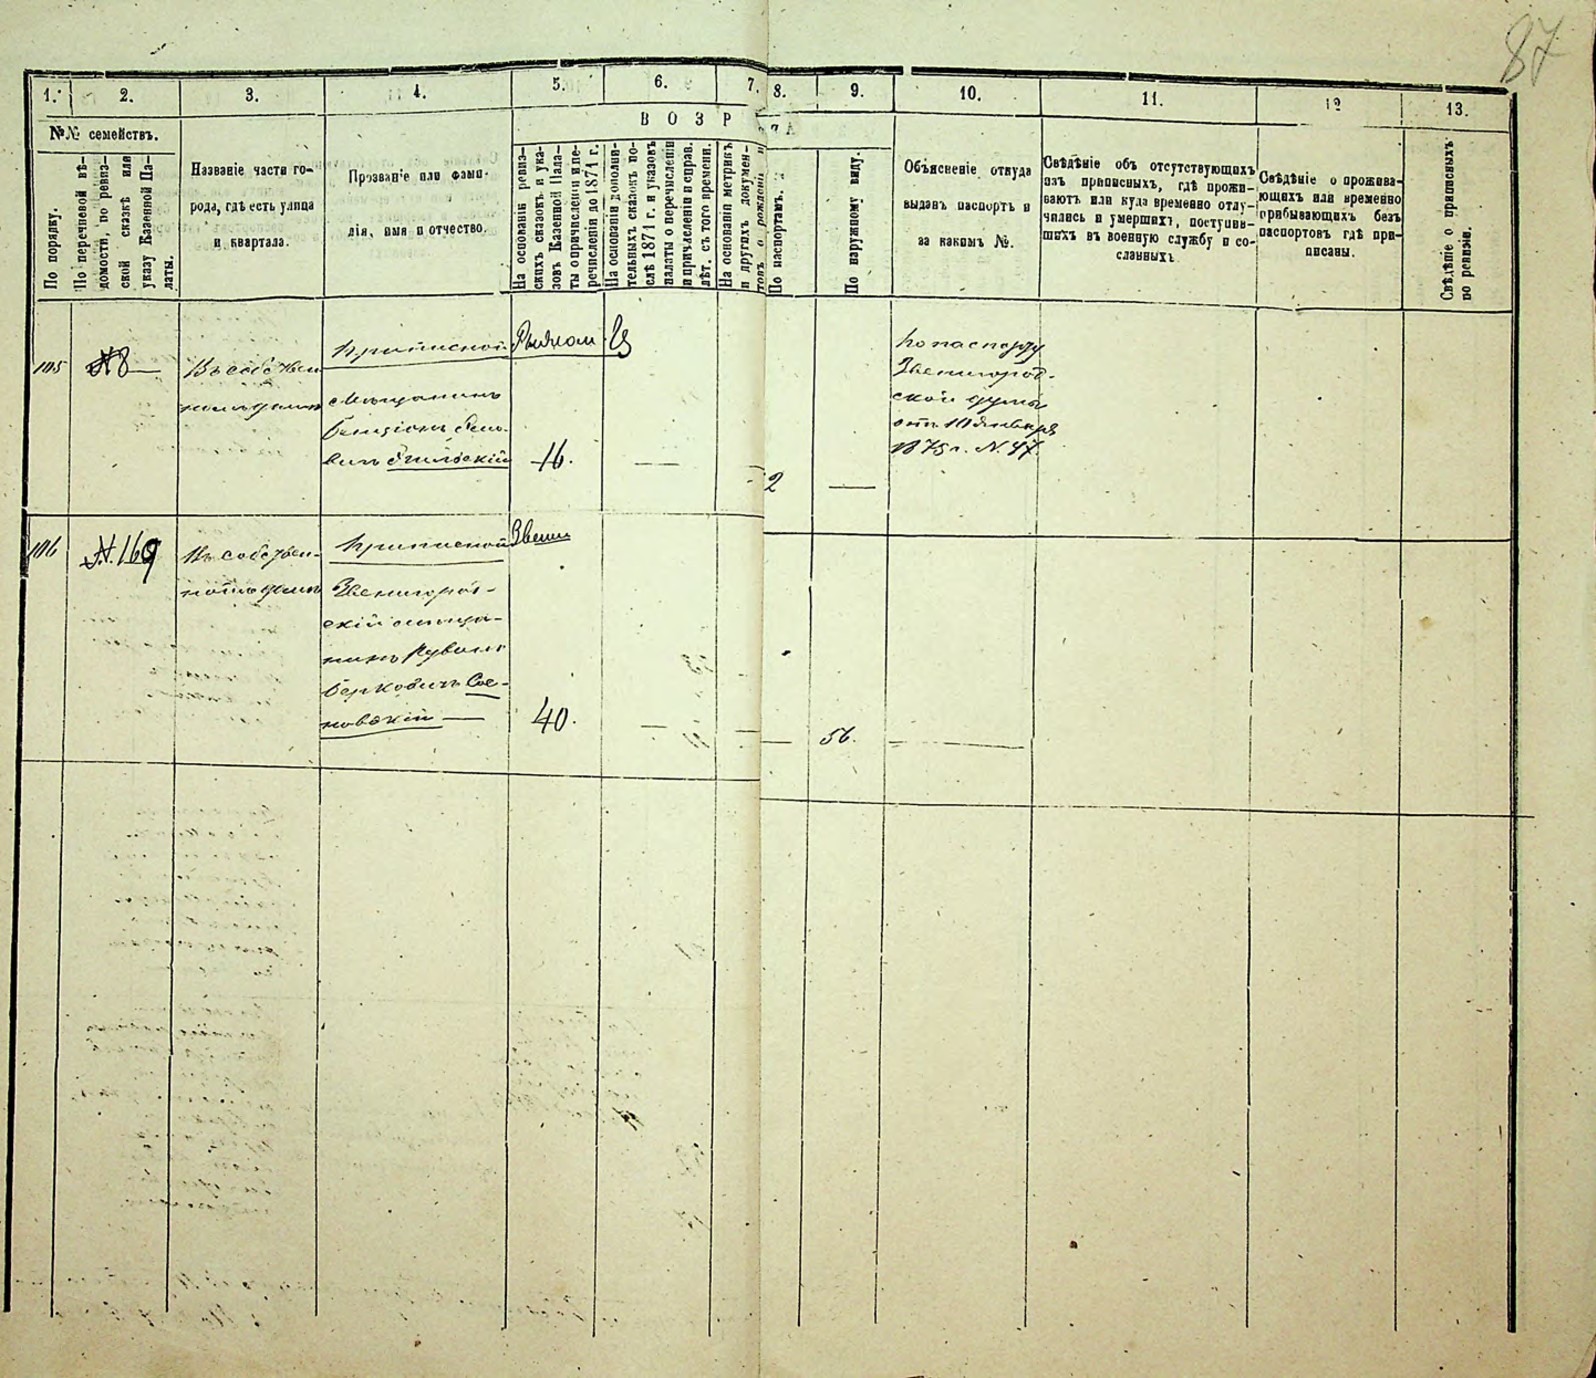 87
1. 2. 3. 4. 5. 6. 7. 8. 9. 10. 11. 12 13.
№№ семействъ.
В О З Р
По порядку.
По перечневой вѣ-
домости, по ревиз-
ской сказкѣ или
указу Казенной Па-
латы.
Названіе части го-
рода, гдѣ есть улица
и квартала.
Прозваніе или фами-
лія, имя и отчество.
На основаніи ревиз-
скихъ сказокъ и ука-
зовъ Казенной Пала-
ты о причисленіи и пе-
речисленіи до 1871 г.
На основаніи дополни-
тельныхъ сказокъ по-
слѣ 1871 г. и указовъ
палаты о перечисленіи
и причисленіи и справ.
лѣт. съ того времени.
На основаніи метрикъ
и другихъ докумен-
товъ о рожденіи и
По паспортамъ.
По наружному виду.
Объясненіе откуда
выданъ паспортъ и
за какимъ №.
Свѣдѣніе объ отсутствующихъ
изъ приписныхъ, гдѣ прожи-
ваютъ или куда временно отлу-
чились и умершихъ, поступив-
шихъ въ военную службу и со-
сланныхъ
Свѣдѣніе о прожива-
ющихъ или временно
прибывающихъ безъ
паспортовъ гдѣ при-
писаны.
Свѣдѣніе о приписныхъ
по ревизіи.
105
№ 8
Въ собствен
номъ домѣ
Приписной
мѣщанинъ
Бенціонъ
вичъ
16.
2
По паспорту
Звенигород-
ской думы
отъ 10 Января
1875 г. № 47
106
№ 169
Въ собствен-
номъ домѣ
Приписной
Звениг
Звенигород-
скій мѣща-
нинъ Рувинъ
Берковичъ Сос-
новскій
40.
56.